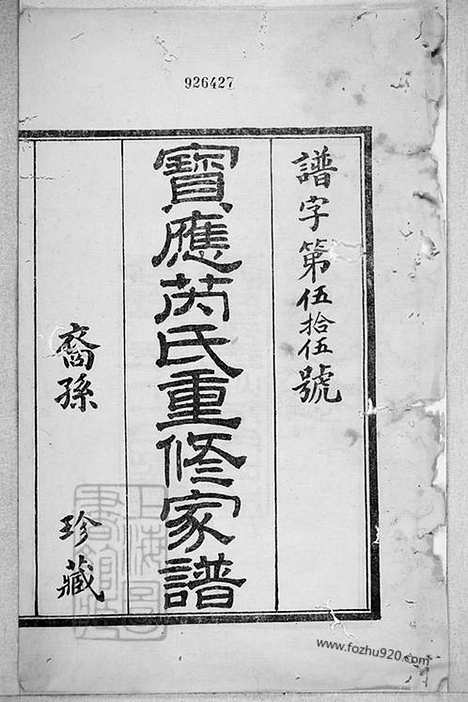 926427
譜字第伍拾伍號
寶應芮氏重修家譜
裔孫 珍藏
上海圖書館藏
www.fozhu920.com